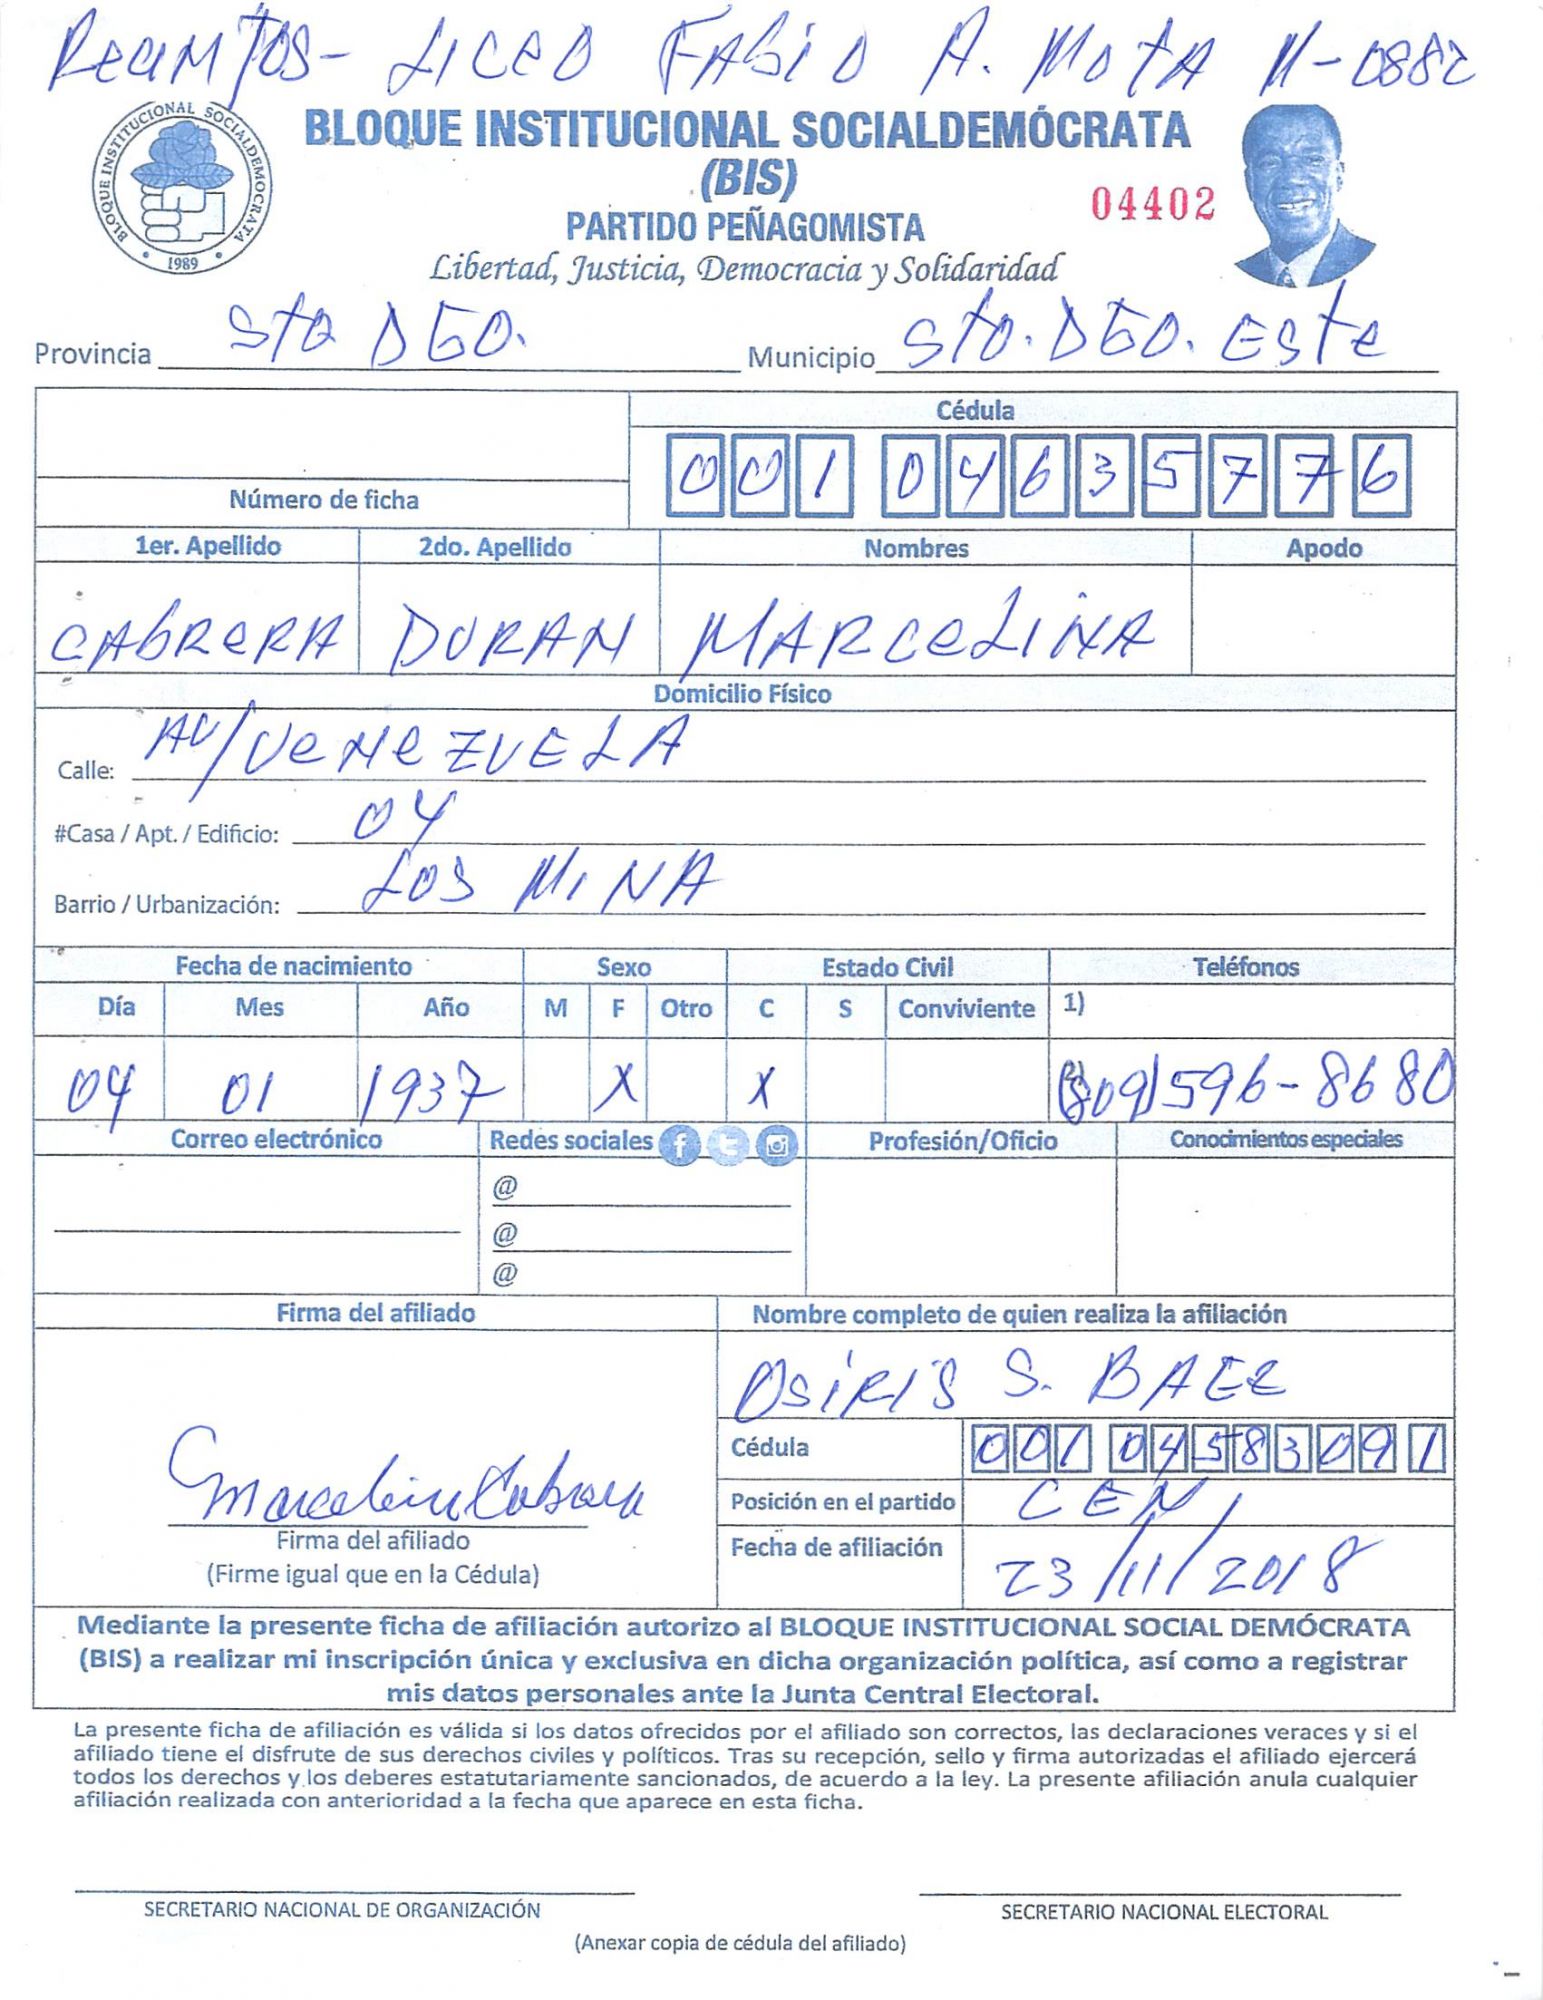 Recintos - Liceo Fabio A. Mota M-0882
BLOQUE INSTITUCIONAL SOCIALDEMOCRATA
1989
BLOQUE INSTITUCIONAL SOCIALDEMÓCRATA
(BIS)
04402
PARTIDO PEÑAGOMISTA
Libertad, Justicia, Democracia y Solidaridad
Provincia Sto DGO. Municipio Sto. DGO. Este
Cédula
001 0463577 6
Número de ficha
1er. Apellido 2do. Apellido Nombres Apodo
CABRERA DURAN MARCELINA
Domicilio Físico
Calle: AV/VENEZUELA
#Casa / Apt. / Edificio: 04
Barrio / Urbanización: LOS MINA
Fecha de nacimiento Sexo Estado Civil Teléfonos
Día Mes Año M F Otro C S Conviviente 1)
04 01 1937 X X (809) 596-8680
Correo electrónico Redes sociales Profesión/Oficio Conocimientos especiales
@
@
@
Firma del afiliado Nombre completo de quien realiza la afiliación
OSIRIS S. BAEZ
Cédula 001 0458309 1
Marcelina Cabrera
Posición en el partido CEN
Firma del afiliado
Fecha de afiliación 23/11/2018
(Firme igual que en la Cédula)
Mediante la presente ficha de afiliación autorizo al BLOQUE INSTITUCIONAL SOCIAL DEMÓCRATA
(BIS) a realizar mi inscripción única y exclusiva en dicha organización política, así como a registrar
mis datos personales ante la Junta Central Electoral.
La presente ficha de afiliación es válida si los datos ofrecidos por el afiliado son correctos, las declaraciones veraces y si el
afiliado tiene el disfrute de sus derechos civiles y políticos. Tras su recepción, sello y firma autorizadas el afiliado ejercerá
todos los derechos y los deberes estatutariamente sancionados, de acuerdo a la ley. La presente afiliación anula cualquier
afiliación realizada con anterioridad a la fecha que aparece en esta ficha.
SECRETARIO NACIONAL DE ORGANIZACIÓN SECRETARIO NACIONAL ELECTORAL
(Anexar copia de cédula del afiliado)